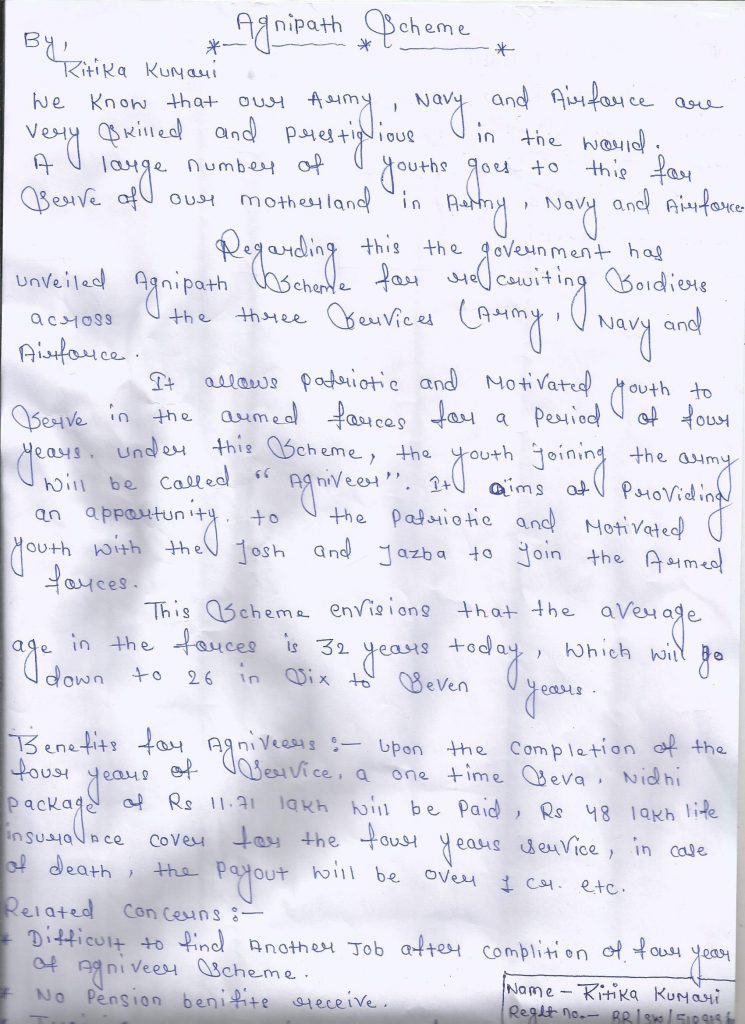 Agnipath Scheme
By,
Ritika Kumari
We Know that our Army, Navy and Airforce are
very Skilled and prestigious in the world.
A large number of youths goes to this for
Serve of our motherland in Army, Navy and Airforce
Regarding this the government has
unveiled Agnipath Scheme for recruiting Soldiers
across the three Services (Army, Navy and
Airforce.
It allows patriotic and Motivated youth to
Serve in the armed forces for a period of four
years. under this Scheme, the youth joining the army
will be called "Agniveer". It aims at Providing
an opportunity. to the Patriotic and Motivated
youth with the Josh and Jazba to join the Armed
forces.
This Scheme envisions that the average
age in the forces is 32 years today, which will go
down to 26 in Six to Seven years.
Benefits for Agniveers :- Upon the completion of the
four years of Service, a one time Seva. Nidhi
package of Rs 11.71 lakh will be paid, Rs 48 lakh life
insurance cover for the four years service, in case
of death, the payout will be over 1 cr. etc.
Related concerns :-
* Difficult to find Another Job after complition of four year
of Agniveer Scheme.
* No Pension benifite receive.
Name - Ritika Kumari
Reglt no. -